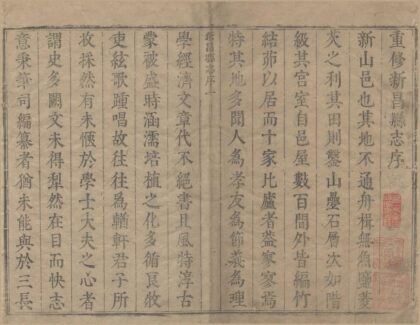 重修新昌縣志序
新山邑也其地不通舟楫無魚鹽菱
芡之利其田則鑿山壘石層次如階
級其宮室自邑屋數百間外皆編竹
結茆以居而十家比廬者蓋寥寥焉
特其地多聞人為孝友為節義為理
學經濟文章代不絕書且風特淳古
蒙被盛時涵濡培植之化多循良牧
吏絃歌踵唱故往往為輶軒君子所
收採然有未愜於學士大夫之心者
謂史多闕文未得犁然在目而快志
意秉筆司編纂者猶未能與於三長